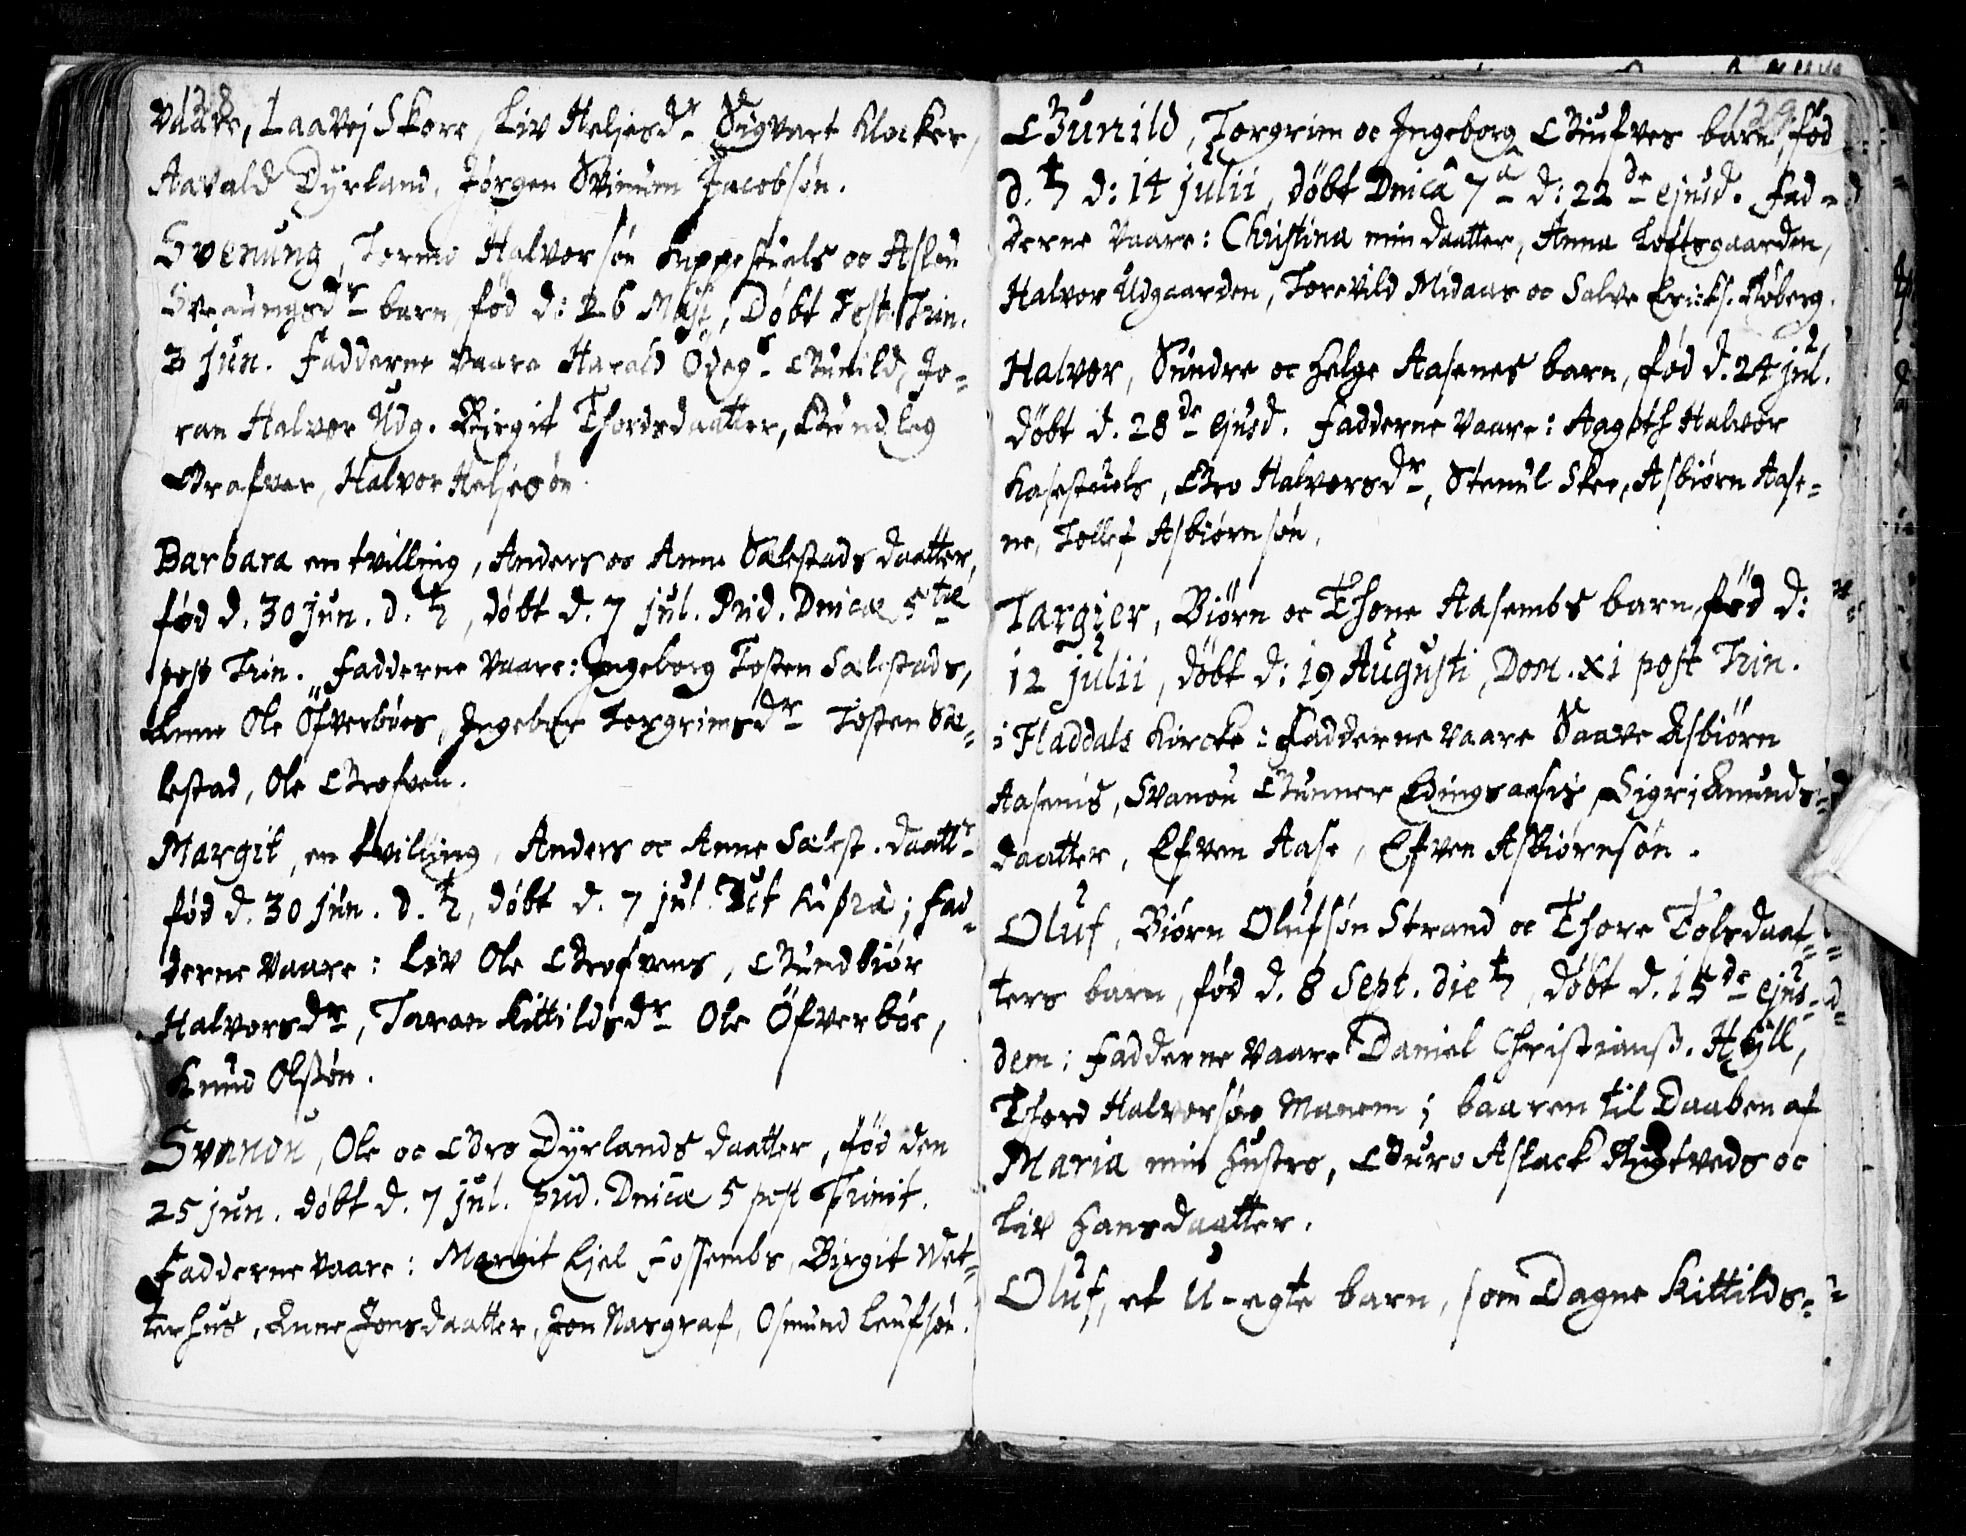 128
vaare, Laavej Skore, Liv Heljesdr Sigvart Klocker,
Aavald Dyrland, Jørgen Svinum Jacobsøn.
Svenung, Tormo Halvorsøn Kuppestuels oc Aslou
Sveinungsdr barn, fød d: 26 Maji, døbt Fest. Trin.
3 jun. Fadderne vaare Harald Ödegs Gunild, Jo-
ran Halvor Udg. Birgit Thordsdaatter, Gundleg
Grafver, Halvor Heljesøn.
Barbara en tvilling, Anders oc Anne Sælestads daatter,
fød d. 30 jun. d. ♄, døbt d. 7 jul. Prid. Dnicæ 5tæ
post Trin. Fadderne vaare: Ingeborg Tosten Sælestads,
Anne Ole Öfverbøes, Ingebor Torgrimsdr Tosten Sæ-
lestad, Ole Grofven.
Margit, en tvilling, Anders oc Anne Sælest. daattr
fød d. 30 jun. d. ♄, døbt d. 7 jul. ut supra; Fad-
derne vaare: Liv Ole Grofvens, Gundbiør
Halvorsdr, Taran Kittildsdr Ole Öfverbøe,
Knud Olssøn.
Svanou, Ole oc Gro Dyrlands daatter, fød den
25 jun. døbt d. 7 jul. prid. Dnicæ 5 post Trinit.
Fadderne vaare: Margit Ejel Fossembs, Birgit Wet-
terhus, Anne Jonsdaatter, Jon Nasgraf, Osmund Leufsøn.
129
Gunild, Torgrim oc Ingeborg Giufves barn, fød
d. ♄ d: 14 julii, døbt Dnicâ 7a d: 22de ejusd. Fad-
derne vaare: Christina min daatter, Anna Loftsgaarden,
Halvor Udgaarden, Torevild Midaas oc Salve Ericks. Fiøberg.
Halvor, Sundre oc Helge Aasenes barn, fød d. 24 jul.
døbt d. 28de ejusd. Fadderne vaare: Aagoth Halvor
Kasestuels, Gro Halvorsdr, Stenul Skee, Asbiørn Aase-
ne, Tollef Asbiørnsøn.
Targier, Biørn oc Thone Aasembs barn, fød d:
12 julii, døbt d: 19 Augusti, Dom. XI post Trin.
i Fladdals Kircke: Fadderne vaare Saave Asbiørn
Aasenis, Svanou Gunner Edingsaasis, Sigri Amunds-
daatter, Efven Aase, Efven Asbiørnsøn.
Oluf, Biørn Olufsøn Strand oc Thore Tolsdaat-
ters barn, fød d. 8 Sept. die ♄, døbt d. 15de ejus-
dem: Fadderne vaare Daniel Christianss. Hyll,
Thord Halvorsøn Manem; baaren til Daaben af
Maria min Hustro, Guro Aslack Rugtveds oc
Liv Hansdaatter.
Oluf, et U-egte barn, som Dagne Kittilds-